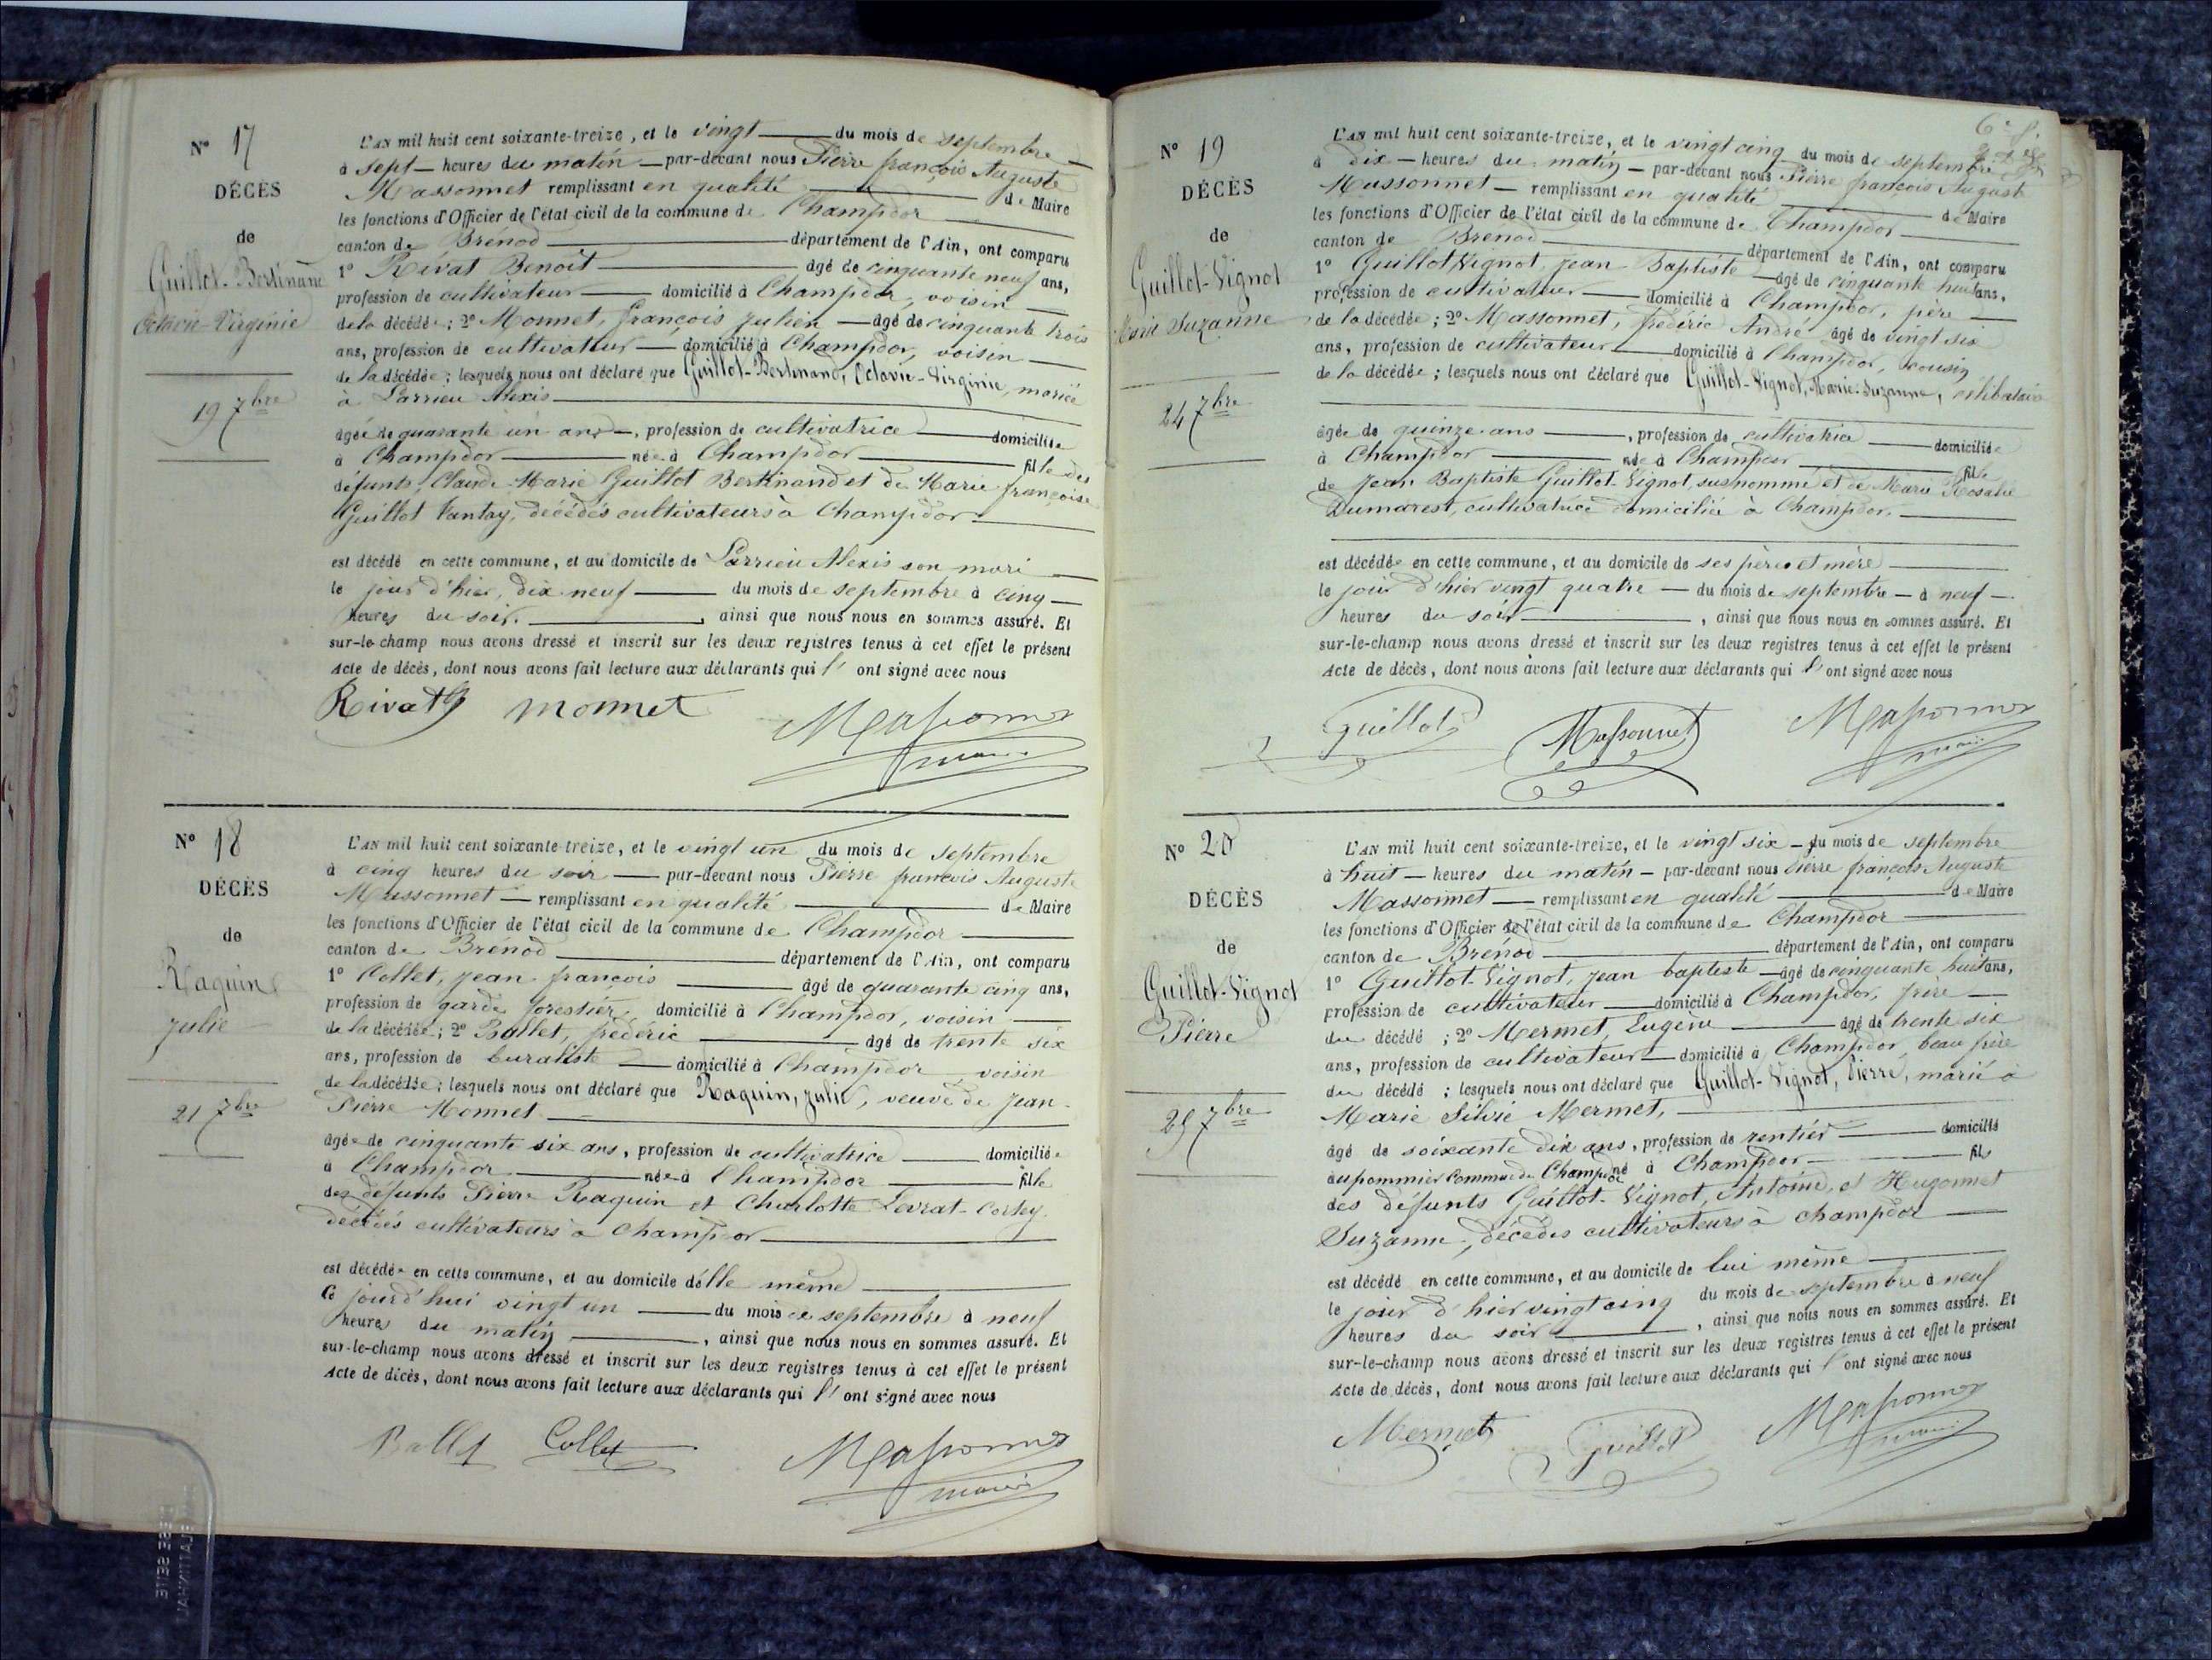 N° 17
DÉCÈS
de
Guillot-Bertinand
Octavie-Virginie
19 7bre
L'AN mil huit cent soixante-treize, et le vingt du mois de septembre
à sept heures du matin par-devant nous Pierre françois Auguste
Massonnet remplissant en qualité de Maire
les fonctions d'Officier de l'état civil de la commune de Champdor
canton de Brénod département de l'Ain, ont comparu
1° Rivat Benoit âgé de cinquante neuf ans,
profession de cultivateur domicilié à Champdor, voisin
de la décédée ; 2° Monnet, françois Julien âgé de cinquante trois
ans, profession de cultivateur domicilié à Champdor, voisin
de la décédée ; lesquels nous ont déclaré que Guillot-Bertinand, Octavie-Virginie, mariée
à Larrieu Alexis
âgée de quarante un ans, profession de cultivatrice domiciliée
à Champdor née à Champdor fille des
défunts, Claude Marie Guillot Bertinand et de Marie françoise
Guillot Vantay, décédés cultivateurs à Champdor
est décédé en cette commune, et au domicile de Larrieu Alexis son mari
le jour d'hier, dix neuf du mois de septembre à cinq
heures du soir, ainsi que nous nous en sommes assuré. Et
sur-le-champ nous avons dressé et inscrit sur les deux registres tenus à cet effet le présent
Acte de décès, dont nous avons fait lecture aux déclarants qui l' ont signé avec nous
Rivat monnet Massonnet
maire
N° 18
DÉCÈS
de
Raquin
Julie
21 7bre
L'AN mil huit cent soixante-treize, et le vingt un du mois de septembre
à cinq heures du soir par-devant nous Pierre françois Auguste
Massonnet remplissant en qualité de Maire
les fonctions d'Officier de l'état civil de la commune de Champdor
canton de Brénod département de l'Ain, ont comparu
1° Collet, Jean françois âgé de quarante cinq ans,
profession de garde forestier, domicilié à Champdor, voisin
de la décédée ; 2° Ballet, frédéric âgé de trente six
ans, profession de buraliste domicilié à Champdor voisin
de la décédée ; lesquels nous ont déclaré que Raquin, Julie, veuve de Jean
Pierre Monnet
âgée de cinquante six ans, profession de cultivatrice domiciliée
à Champdor née à Champdor fille
des défunts Pierre Raquin et Charlotte Levrat-Cortey,
décédés cultivateurs à Champdor
est décédée en cette commune, et au domicile d'elle même
Ce jourd'hui vingt un du mois de septembre à neuf
heures du matin, ainsi que nous nous en sommes assuré. Et
sur-le-champ nous avons dressé et inscrit sur les deux registres tenus à cet effet le présent
Acte de décès, dont nous avons fait lecture aux déclarants qui l' ont signé avec nous
Ballet Collet Massonnet
maire
N° 19
DÉCÈS
de
Guillot-Vignot
Marie Suzanne
24 7bre
L'AN mil huit cent soixante-treize, et le vingt cinq du mois de septembre
à dix heures du matin par-devant nous Pierre françois Auguste
Massonnet remplissant en qualité de Maire
les fonctions d'Officier de l'état civil de la commune de Champdor
canton de Brénod département de l'Ain, ont comparu
1° Guillot Vignot, Jean Baptiste âgé de cinquante huit ans,
profession de cultivateur domicilié à Champdor, père
de la décédée ; 2° Massonnet, frédéric André âgé de vingt six
ans, profession de cultivateur domicilié à Champdor, cousin
de la décédée ; lesquels nous ont déclaré que Guillot-Vignot, Marie-Suzanne, célibataire
âgée de quinze ans, profession de cultivatrice domiciliée
à Champdor née à Champdor fille
de Jean Baptiste Guillot-Vignot, susnommé et de Marie Rosalie
Dumarest, cultivatrice domiciliée à Champdor,
est décédée en cette commune, et au domicile de ses père et mère
le jour d'hier vingt quatre du mois de septembre à neuf
heures du soir, ainsi que nous nous en sommes assuré. Et
sur-le-champ nous avons dressé et inscrit sur les deux registres tenus à cet effet le présent
Acte de décès, dont nous avons fait lecture aux déclarants qui l' ont signé avec nous
guillot Massonnet Massonnet
maire
N° 20
DÉCÈS
de
Guillot-Vignot
Pierre
25 7bre
L'AN mil huit cent soixante-treize, et le vingt six du mois de septembre
à huit heures du matin par-devant nous Pierre françois Auguste
Massonnet remplissant en qualité de Maire
les fonctions d'Officier de l'état civil de la commune de Champdor
canton de Brénod département de l'Ain, ont comparu
1° Guillot-Vignot, Jean baptiste âgé de cinquante huit ans,
profession de cultivateur domicilié à Champdor, frère
du décédé ; 2° Mermet, Eugène âgé de trente six
ans, profession de cultivateur domicilié à Champdor, beau frère
du décédé ; lesquels nous ont déclaré que Guillot-Vignot, Pierre, marié à
Marie Silvie Mermet,
âgé de soixante dix ans, profession de rentier domicilié
au pommier commune de Champdor né à Champdor fils
des défunts Guillot-Vignot, Antoine, et Hugonnet
Suzanne, décédés cultivateurs à champdor
est décédé en cette commune, et au domicile de lui même
le jour d'hier vingt cinq du mois de septembre à neuf
heures du soir, ainsi que nous nous en sommes assuré. Et
sur-le-champ nous avons dressé et inscrit sur les deux registres tenus à cet effet le présent
Acte de décès, dont nous avons fait lecture aux déclarants qui l' ont signé avec nous
Mermet guillot Massonnet
maire